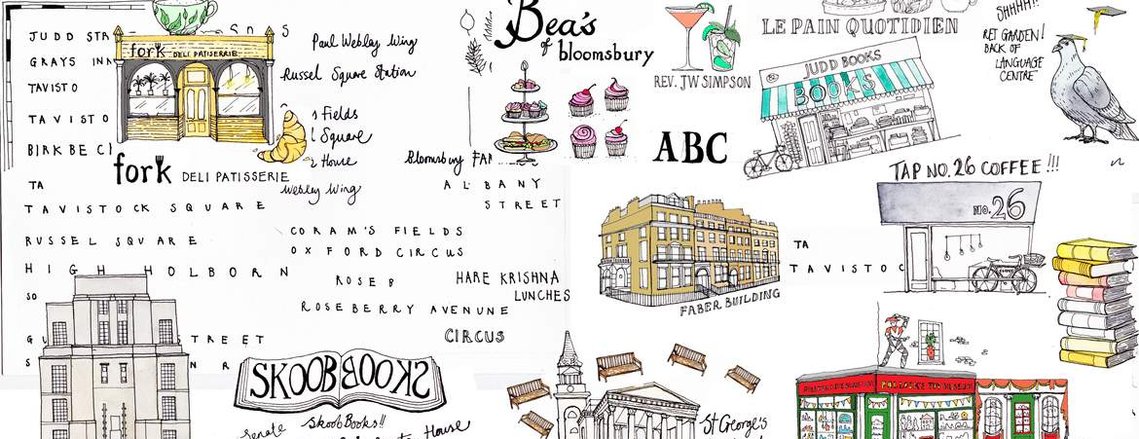 JUDD
fork DELI PATISSERIE
GRAYS INN
TAVISTO
TAVISTO
BIRKBEC
fork DELI PATISSERIE
TA
TAVISTOCK SQUARE
RUSSEL SQUARE
HIGH HOLBORN
SO
STREET
Paul Webley Wing
Russel Square Station
Fields
Square
House
Webley Wing
Bloomsbury
ALBANY
STREET
CORAM'S FIELDS
OXFORD CIRCUS
ROSEB
HARE KRISHNA
LUNCHES
ROSEBERRY AVENUNE
CIRCUS
SKOOBBOOKS
SkoobBooks!!
Senate
House
Bea's
of bloomsbury
REV. JW SIMPSON
ABC
LE PAIN QUOTIDIEN
JUDD BOOKS
BOOKS
SHHHH!!
RET GARDEN!
BACK OF
LANGUAGE
CENTRE
TAP NO. 26 COFFEE!!!
NO. 26
FABER BUILDING
TA
TAVISTOC
St George's